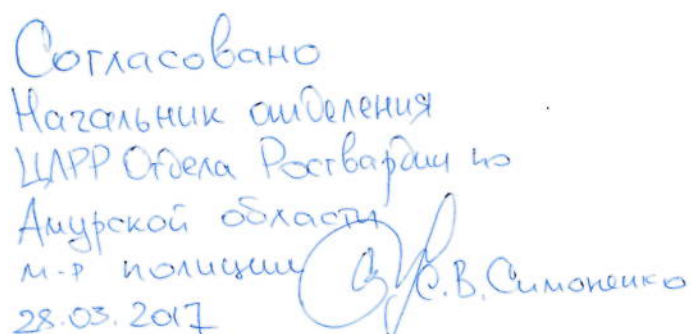 Согласовано
Начальник отделения
ЦЛРР Отдела Росгвардии по
Амурской области
м-р полиции С.В. Симоненко
28.03.2017